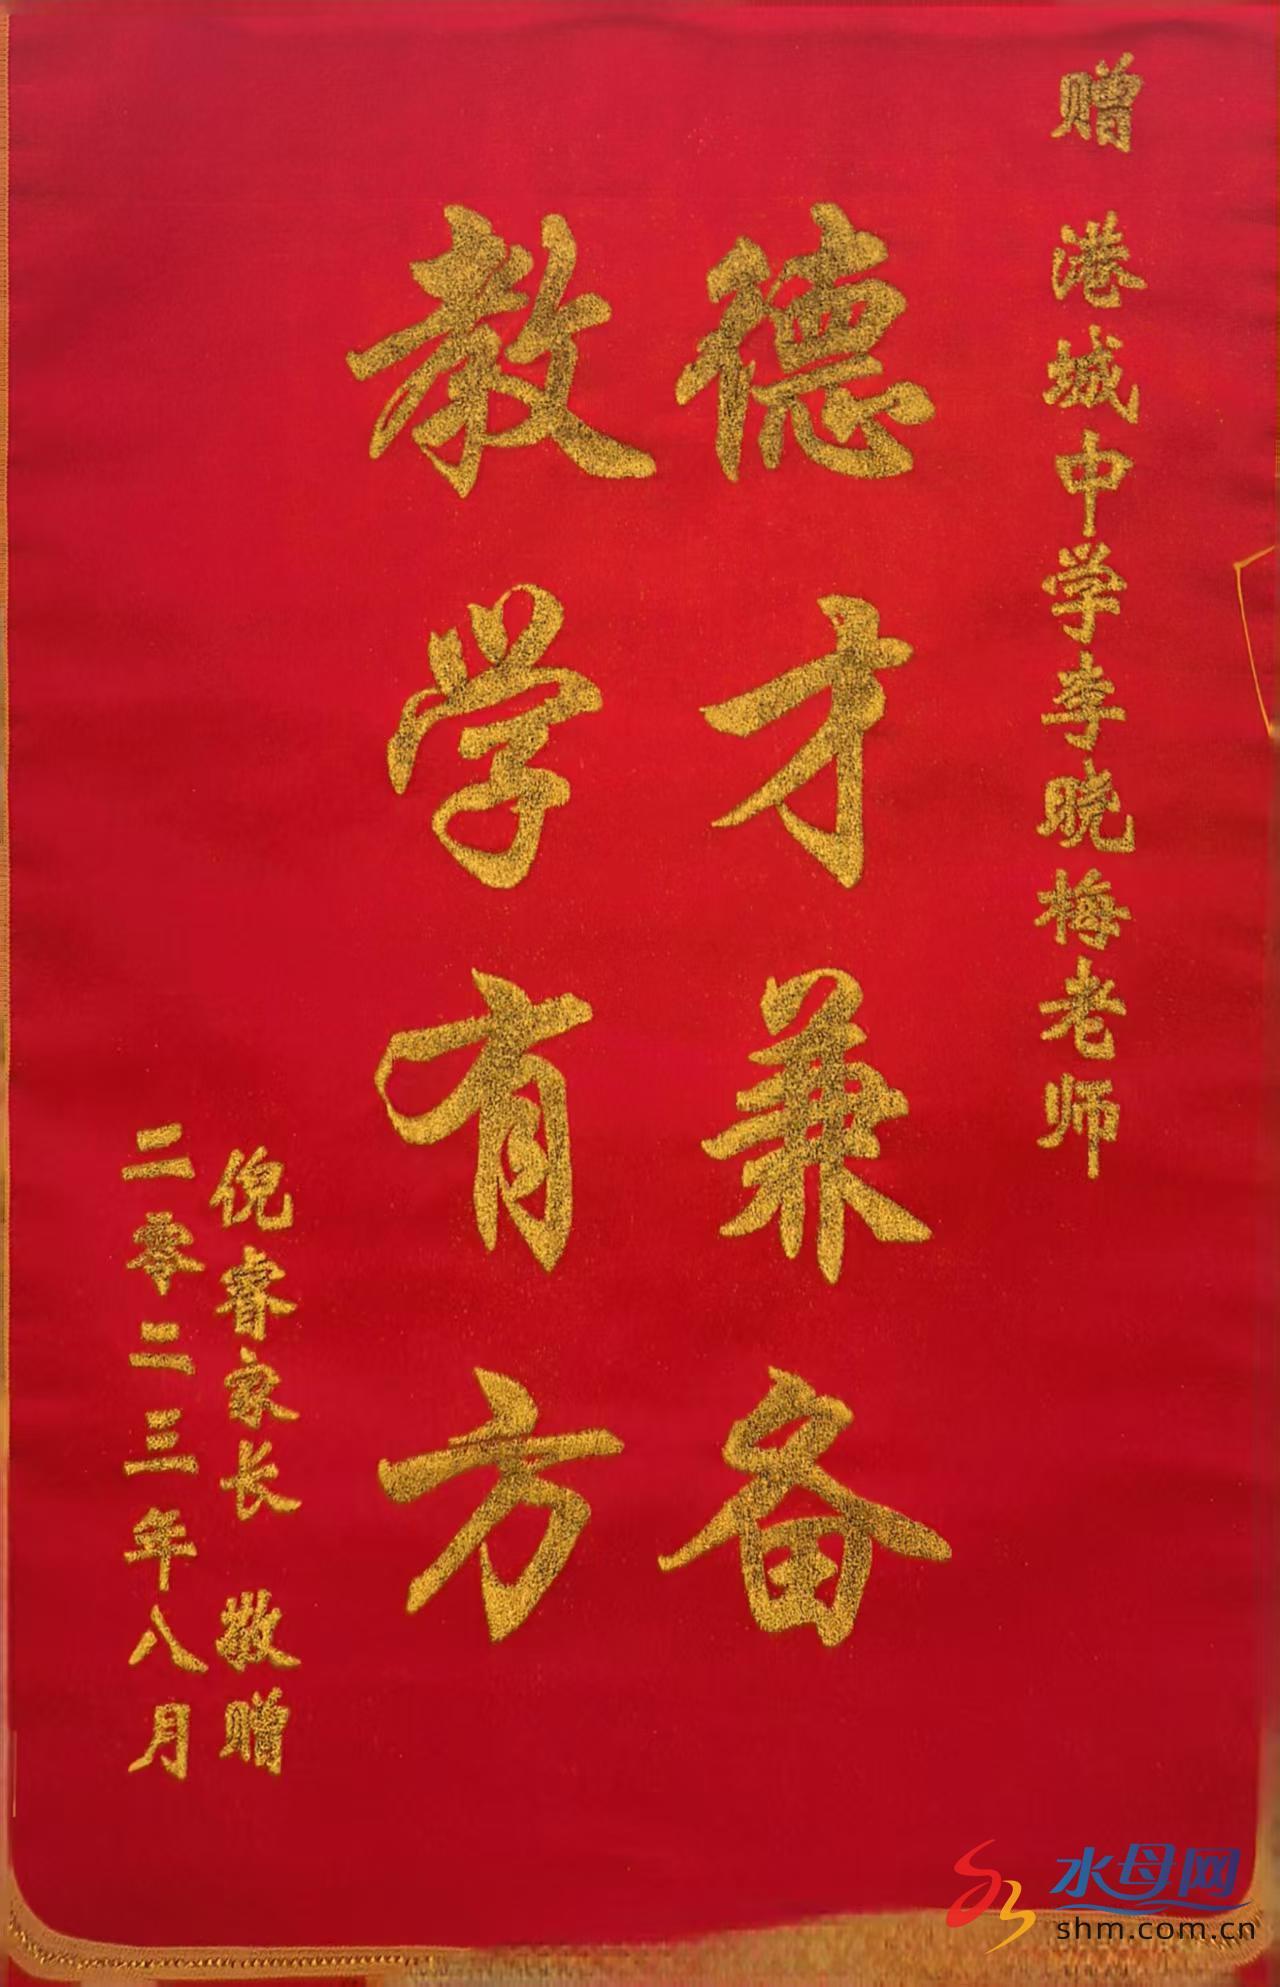 赠 港城中学李晓梅老师
德才兼备
教学有方
倪睿家长 敬赠
二零二三年八月
水母网
shm.com.cn